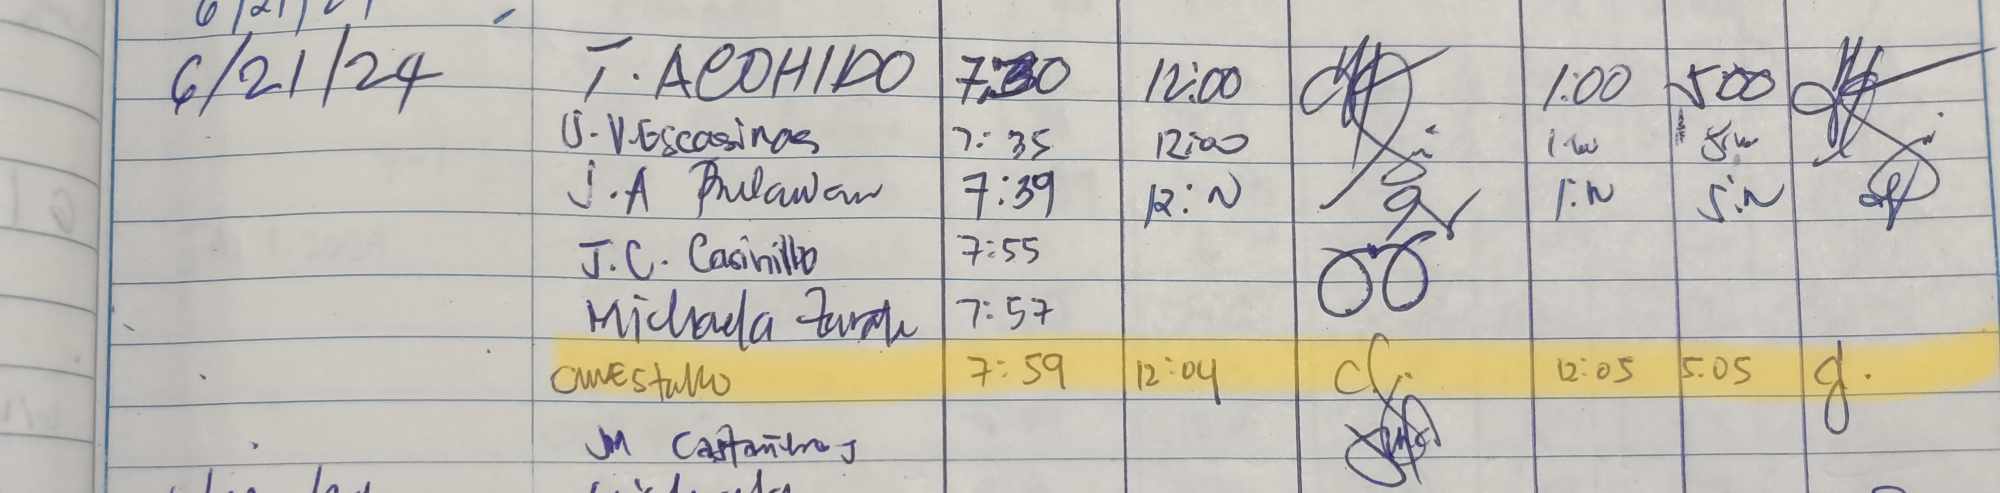 6/21/24 T. ACOHIDO 7:30 12:00 1:00 5:00
J.V. Escasinas 7:35 12:00 1:00 5:00
J.A Bulawan 7:39 12:N 1:N 5:N
J.C. Casinillo 7:55
Michaela 7:57
7:59 12:04 12:05 5.05
JM